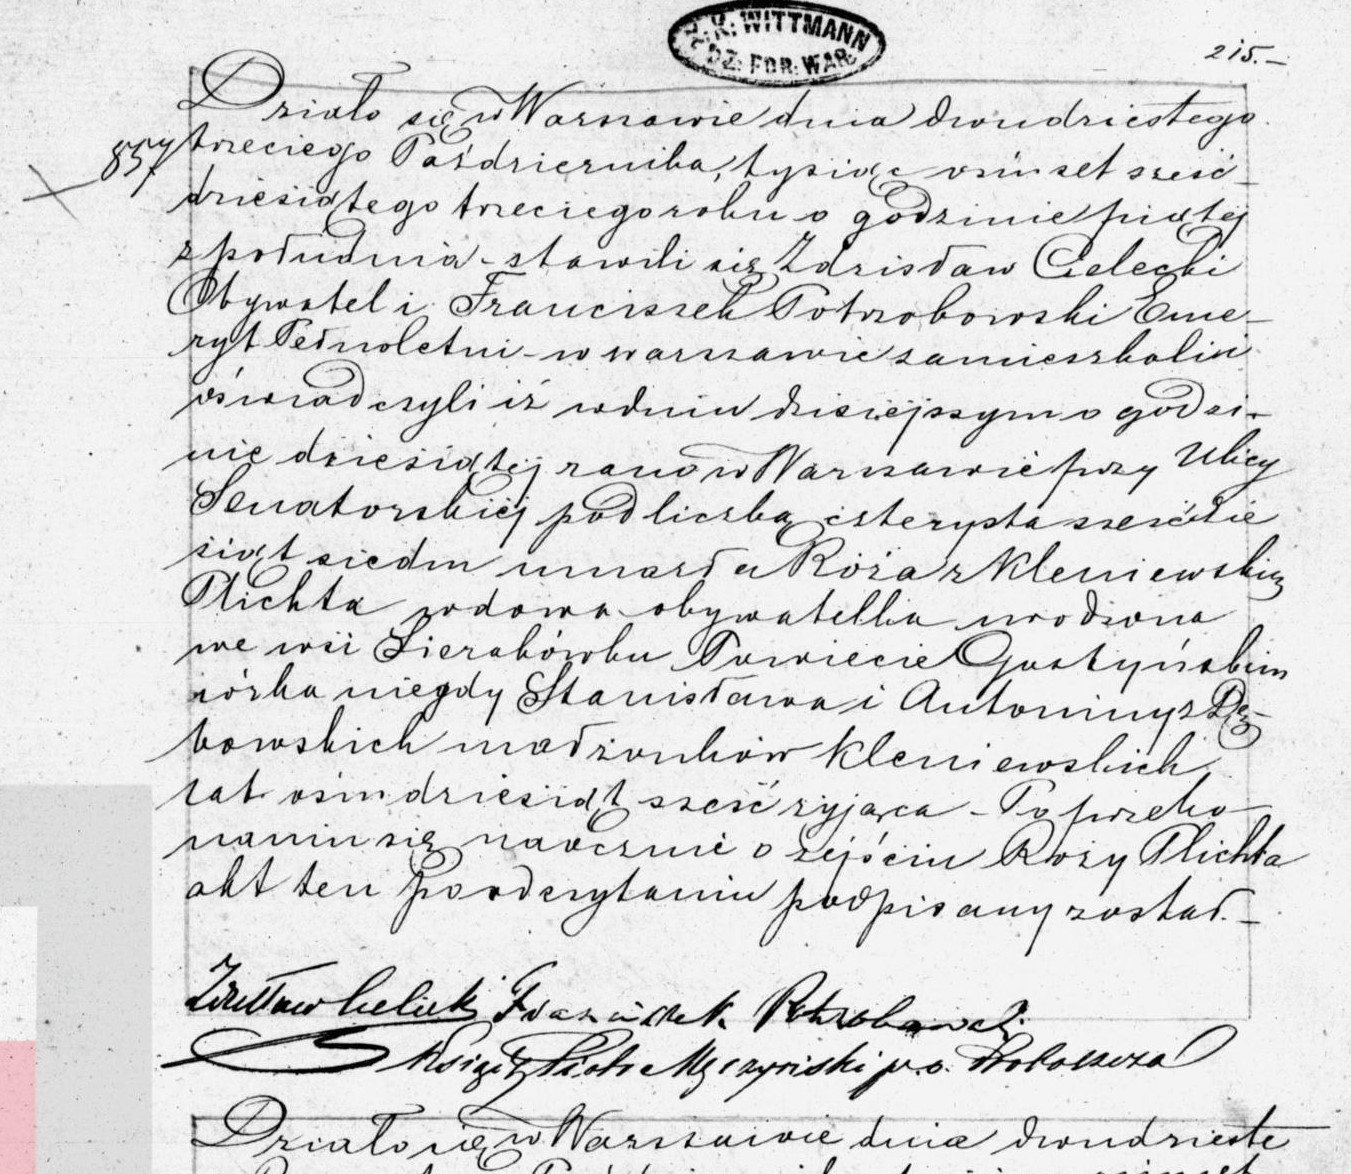 K. WITTMANN
FOR. WAR.
215.-
Działo się w Warszawie dnia dwudziestego
857 trzeciego Października, tysiąc ośmset sześć-
dziesiątego trzeciego roku o godzinie piątej
z południa - stawili się Zdzisław Cielecki
Obywatel i Franciszek Potrzobowski Eme-
ryt Pełnoletni - w warszawie zamieszkali i
oświadczyli iż w dniu dzisiejszym o godzi-
nie dziesiątej rano w Warszawie przy Ulicy
Senatorskiej pod liczbą czterysta sześćdzie
siąt siedm umarła Róża z Kleniewskich
Plichta wdowa obywatelka urodzona
we wsi Sierakówku Powiecie Gostyńskim
córka niegdy Stanisława i Antoniny z Dę-
bowskich małżonków Kleniewskich,
lat ośmdziesiąt sześć żyjąca - Po przeko-
naniu się naocznie o zejściu Róży Plichta
akt ten po odczytaniu podpisany został. -
Zdzisław Cielecki Franciszek Potrzobowski
Ksiądz Piotr Męczyński p.o. Proboszcza
Działo się w Warszawie dnia dwudzieste